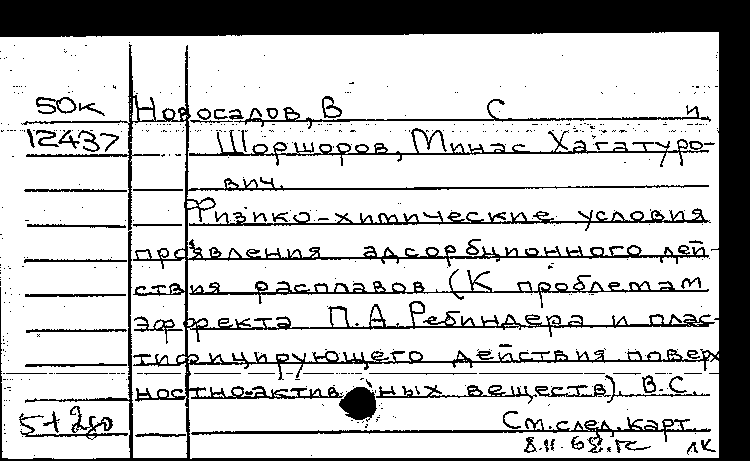 50к Новосадов, В С и
12437 Шоршоров, Минас Хачатуро-
вич.
Физико-химические условия
проявления адсорбционного дей-
ствия расплавов. (К проблемам
эффекта П.А. Ребиндера и плас-
тифицирующего действия поверх
ностно-активных веществ). В.С.
См. след. карт.
лк